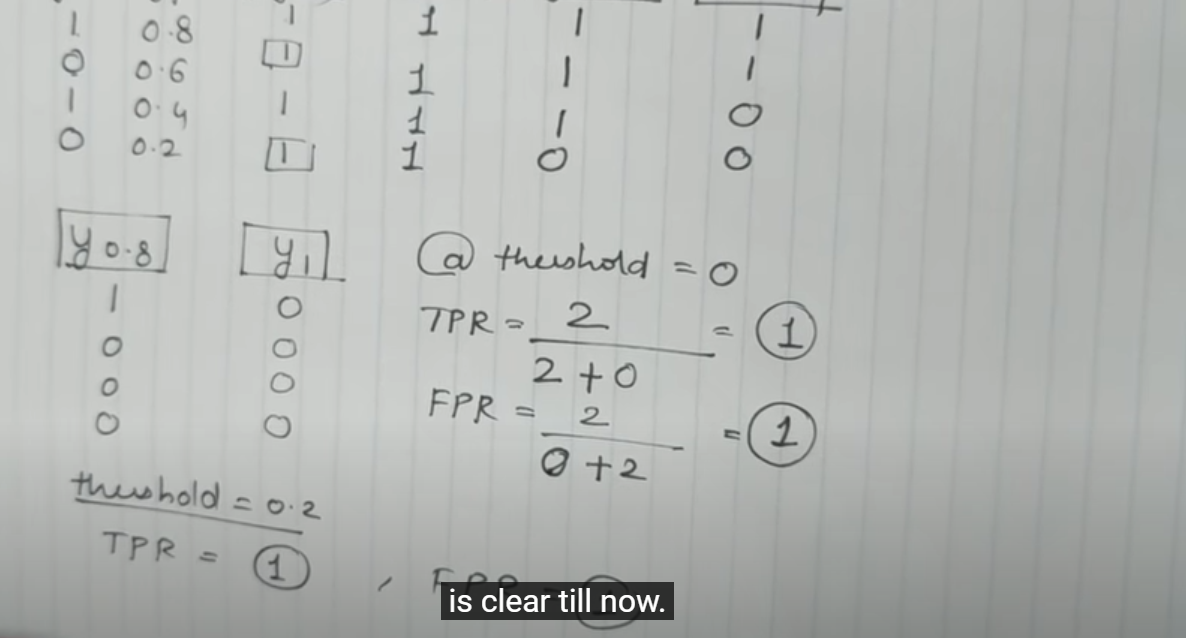 1 0.8 1 1 1 1
0 0.6 1 1 1 1
1 0.4 1 1 1 0
0 0.2 1 1 0 0
y0.8 y1 @ threshold = 0
1 0 TPR = 2 / 2 + 0 = 1
0 0
0 0 FPR = 2 / 0 + 2 = 1
0 0
threshold = 0.2
TPR = 1 , FPR =
is clear till now.